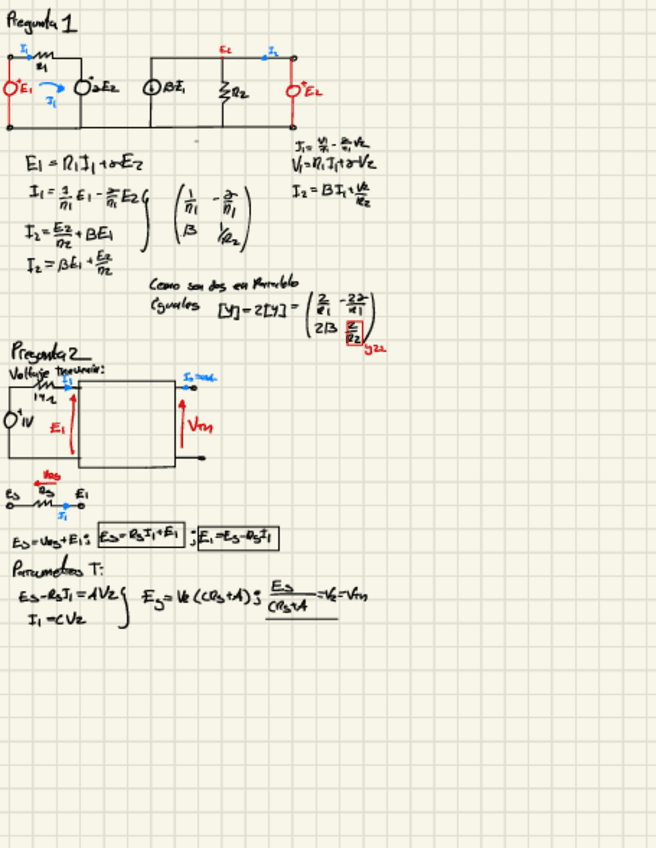 Pregunta 1
I₁ R₁ E₂ I₂
E₁ I₁ αE₂ βI₁ R₂ E₂
E₁ = R₁I₁ + αE₂
I₁ = 1/R₁ E₁ - α/R₁ E₂
I₂ = E₂/R₂ + βE₁
I₂ = βE₁ + E₂/R₂
(1/R₁ -α/R₁
β 1/R₂)
I₁ = V₁/R₁ - α/R₁ V₂
V₁ = R₁I₁ + αV₂
I₂ = βI₁ + V₂/R₂
Como son dos en Paralelo
Iguales [Y] = 2[Y] = (2/R₁ -2α/R₁
2β 2/R₂) y₂₂
Pregunta 2
Voltaje Thevenin:
I₁
1V E₁ Vth
Es Rs E₁
I₁
Es = VRs + E₁; Es = RsI₁ + E₁ ; E₁ = Es - RsI₁
Parametros T:
Es - RsI₁ = AV₂
I₁ = CV₂
Es = V₂(CRs + A); Es/(CRs + A) = V₂ = Vth